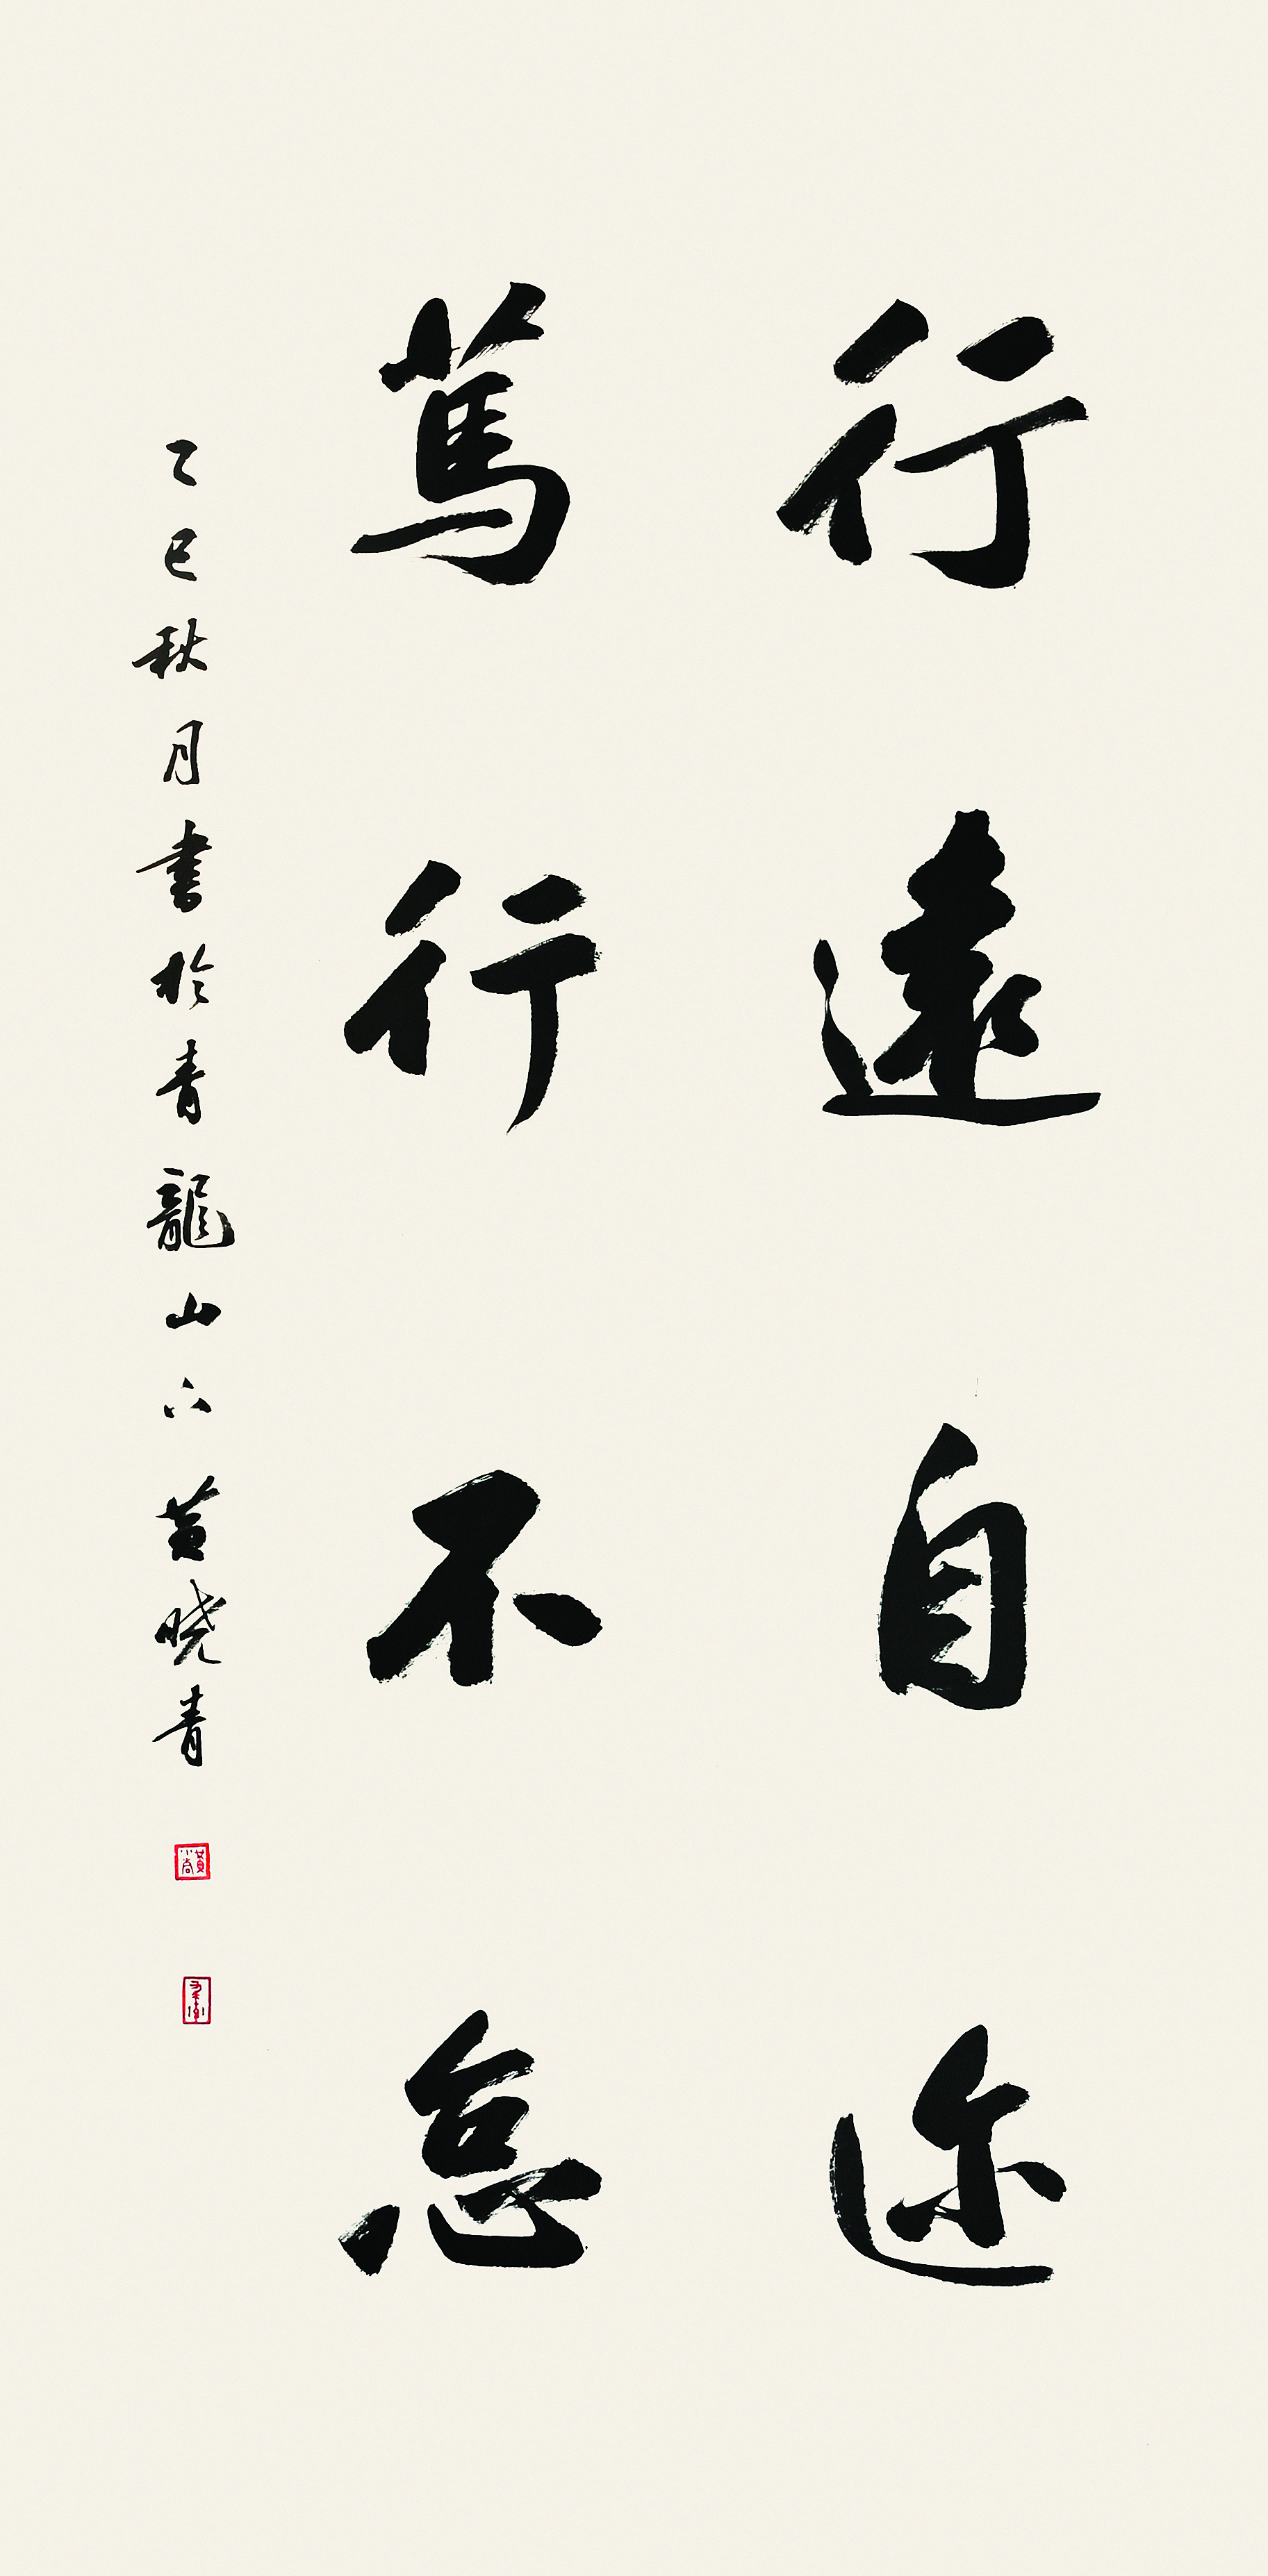 行遠自迩
篤行不怠
乙巳秋月書於青龍山下黄晓青